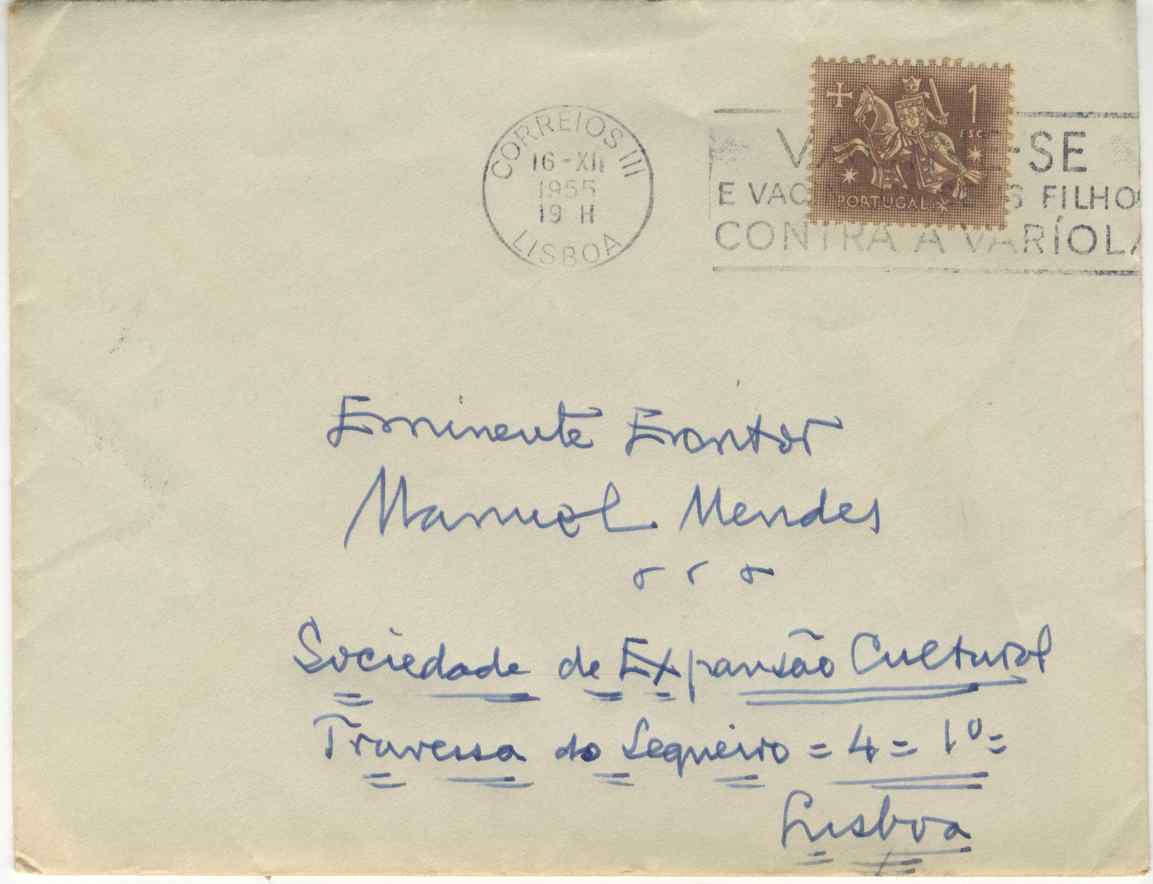 CORREIOS III
16-XII
1955
19 H
LISBOA
1
ESC
PORTUGAL
-SE
E VAC S FILHO
CONTRA A VARÍOLA
Eminente Escritor
Manuel Mendes
Sociedade de Expansão Cultural
Travessa do Sequeiro = 4 = 1º =
Lisboa